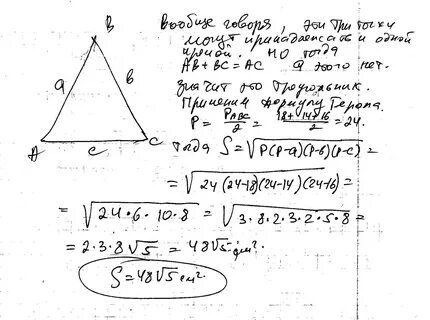 B
a
b
A
c
C
Вообще говоря, эти три точки
могут принадлежать и одной
прямой. Но тогда
AB + BC = AC а этого нет.
значит это треугольник.
Применим формулу Герона.
P = P_ABC/2 = (18+14+16)/2 = 24.
тогда S = √(P(P-a)(P-b)(P-c)) =
= √(24(24-18)(24-14)(24-16)) =
= √(24·6·10·8) = √(3·8·2·3·2·5·8) =
= 2·3·8√5 = 48√5 см².
S = 48√5 см²